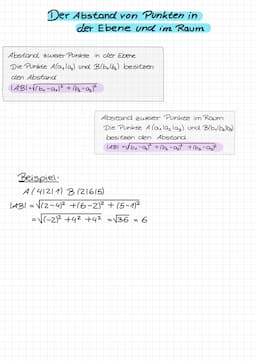 Der Abstand von Punkten in
der Ebene und im Raum
Abstand zweier Punkte in der Ebene
Die Punkte A(a₁|a₂) und B(b₁|b₂) besitzen
den Abstand
|AB|=√(b₁-a₁)² + (b₂-a₂)²
Abstand zweier Punkte im Raum
Die Punkte A(a₁|a₂|a₃) und B(b₁|b₂|b₃)
besitzen den Abstand
|AB|=√(b₁-a₁)² + (b₂-a₂)² + (b₃-a₃)²
Beispiel:
A(4|2|1) B(2|6|5)
|AB| = √(2-4)² + (6-2)² + (5-1)²
= √(-2)² + 4² + 4² = √36 = 6